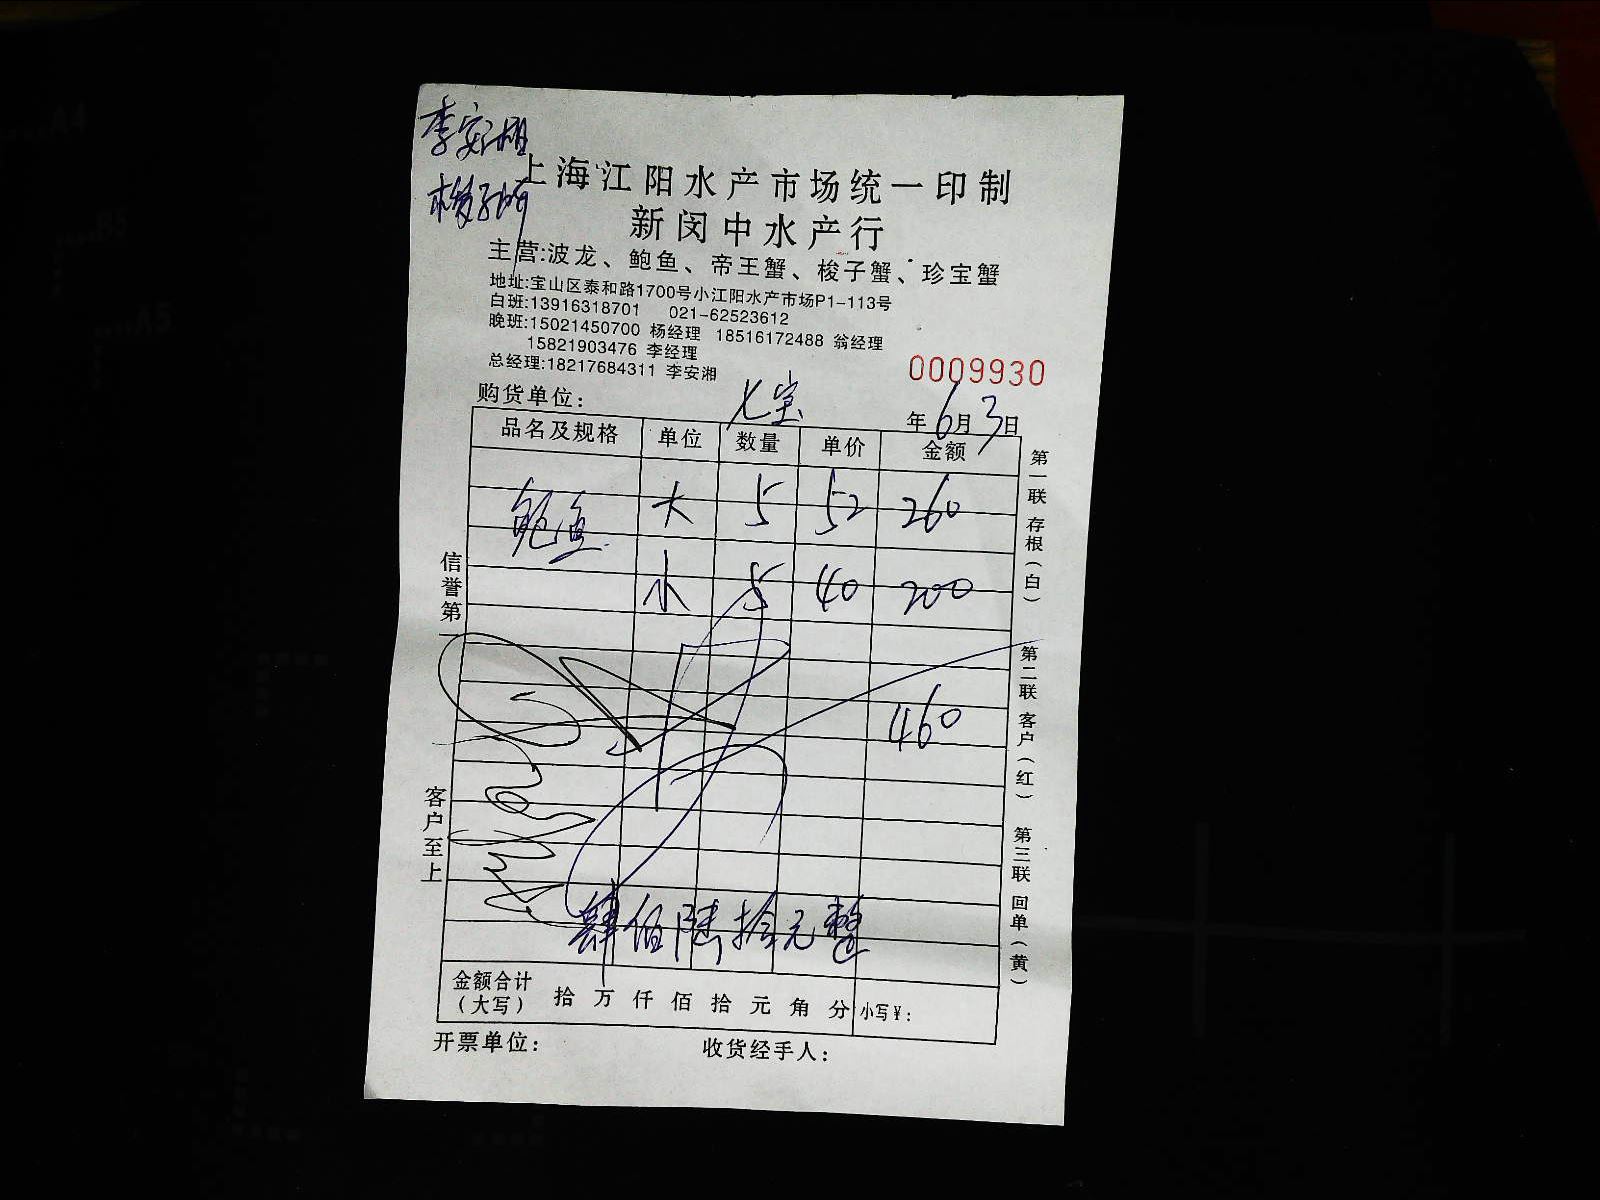 李安湘
上海江阳水产市场统一印制
新闵中水产行
主营:波龙、鲍鱼、帝王蟹、梭子蟹、珍宝蟹
地址:宝山区泰和路1700号小江阳水产市场P1-113号
白班:13916318701 021-62523612
晚班:15021450700 杨经理 18516172488 翁经理
15821903476 李经理
总经理:18217684311 李安湘
0009930
购货单位: 七宝 年6月3日
品名及规格 单位 数量 单价 金额
鲍鱼 大 5 52 260
小 5 40 200
460
肆佰陆拾元整
金额合计(大写) 拾 万 仟 佰 拾 元 角 分 小写¥:
开票单位: 收货经手人:
信誉第一
客户至上
第一联 存根(白)
第二联 客户(红)
第三联 回单(黄)